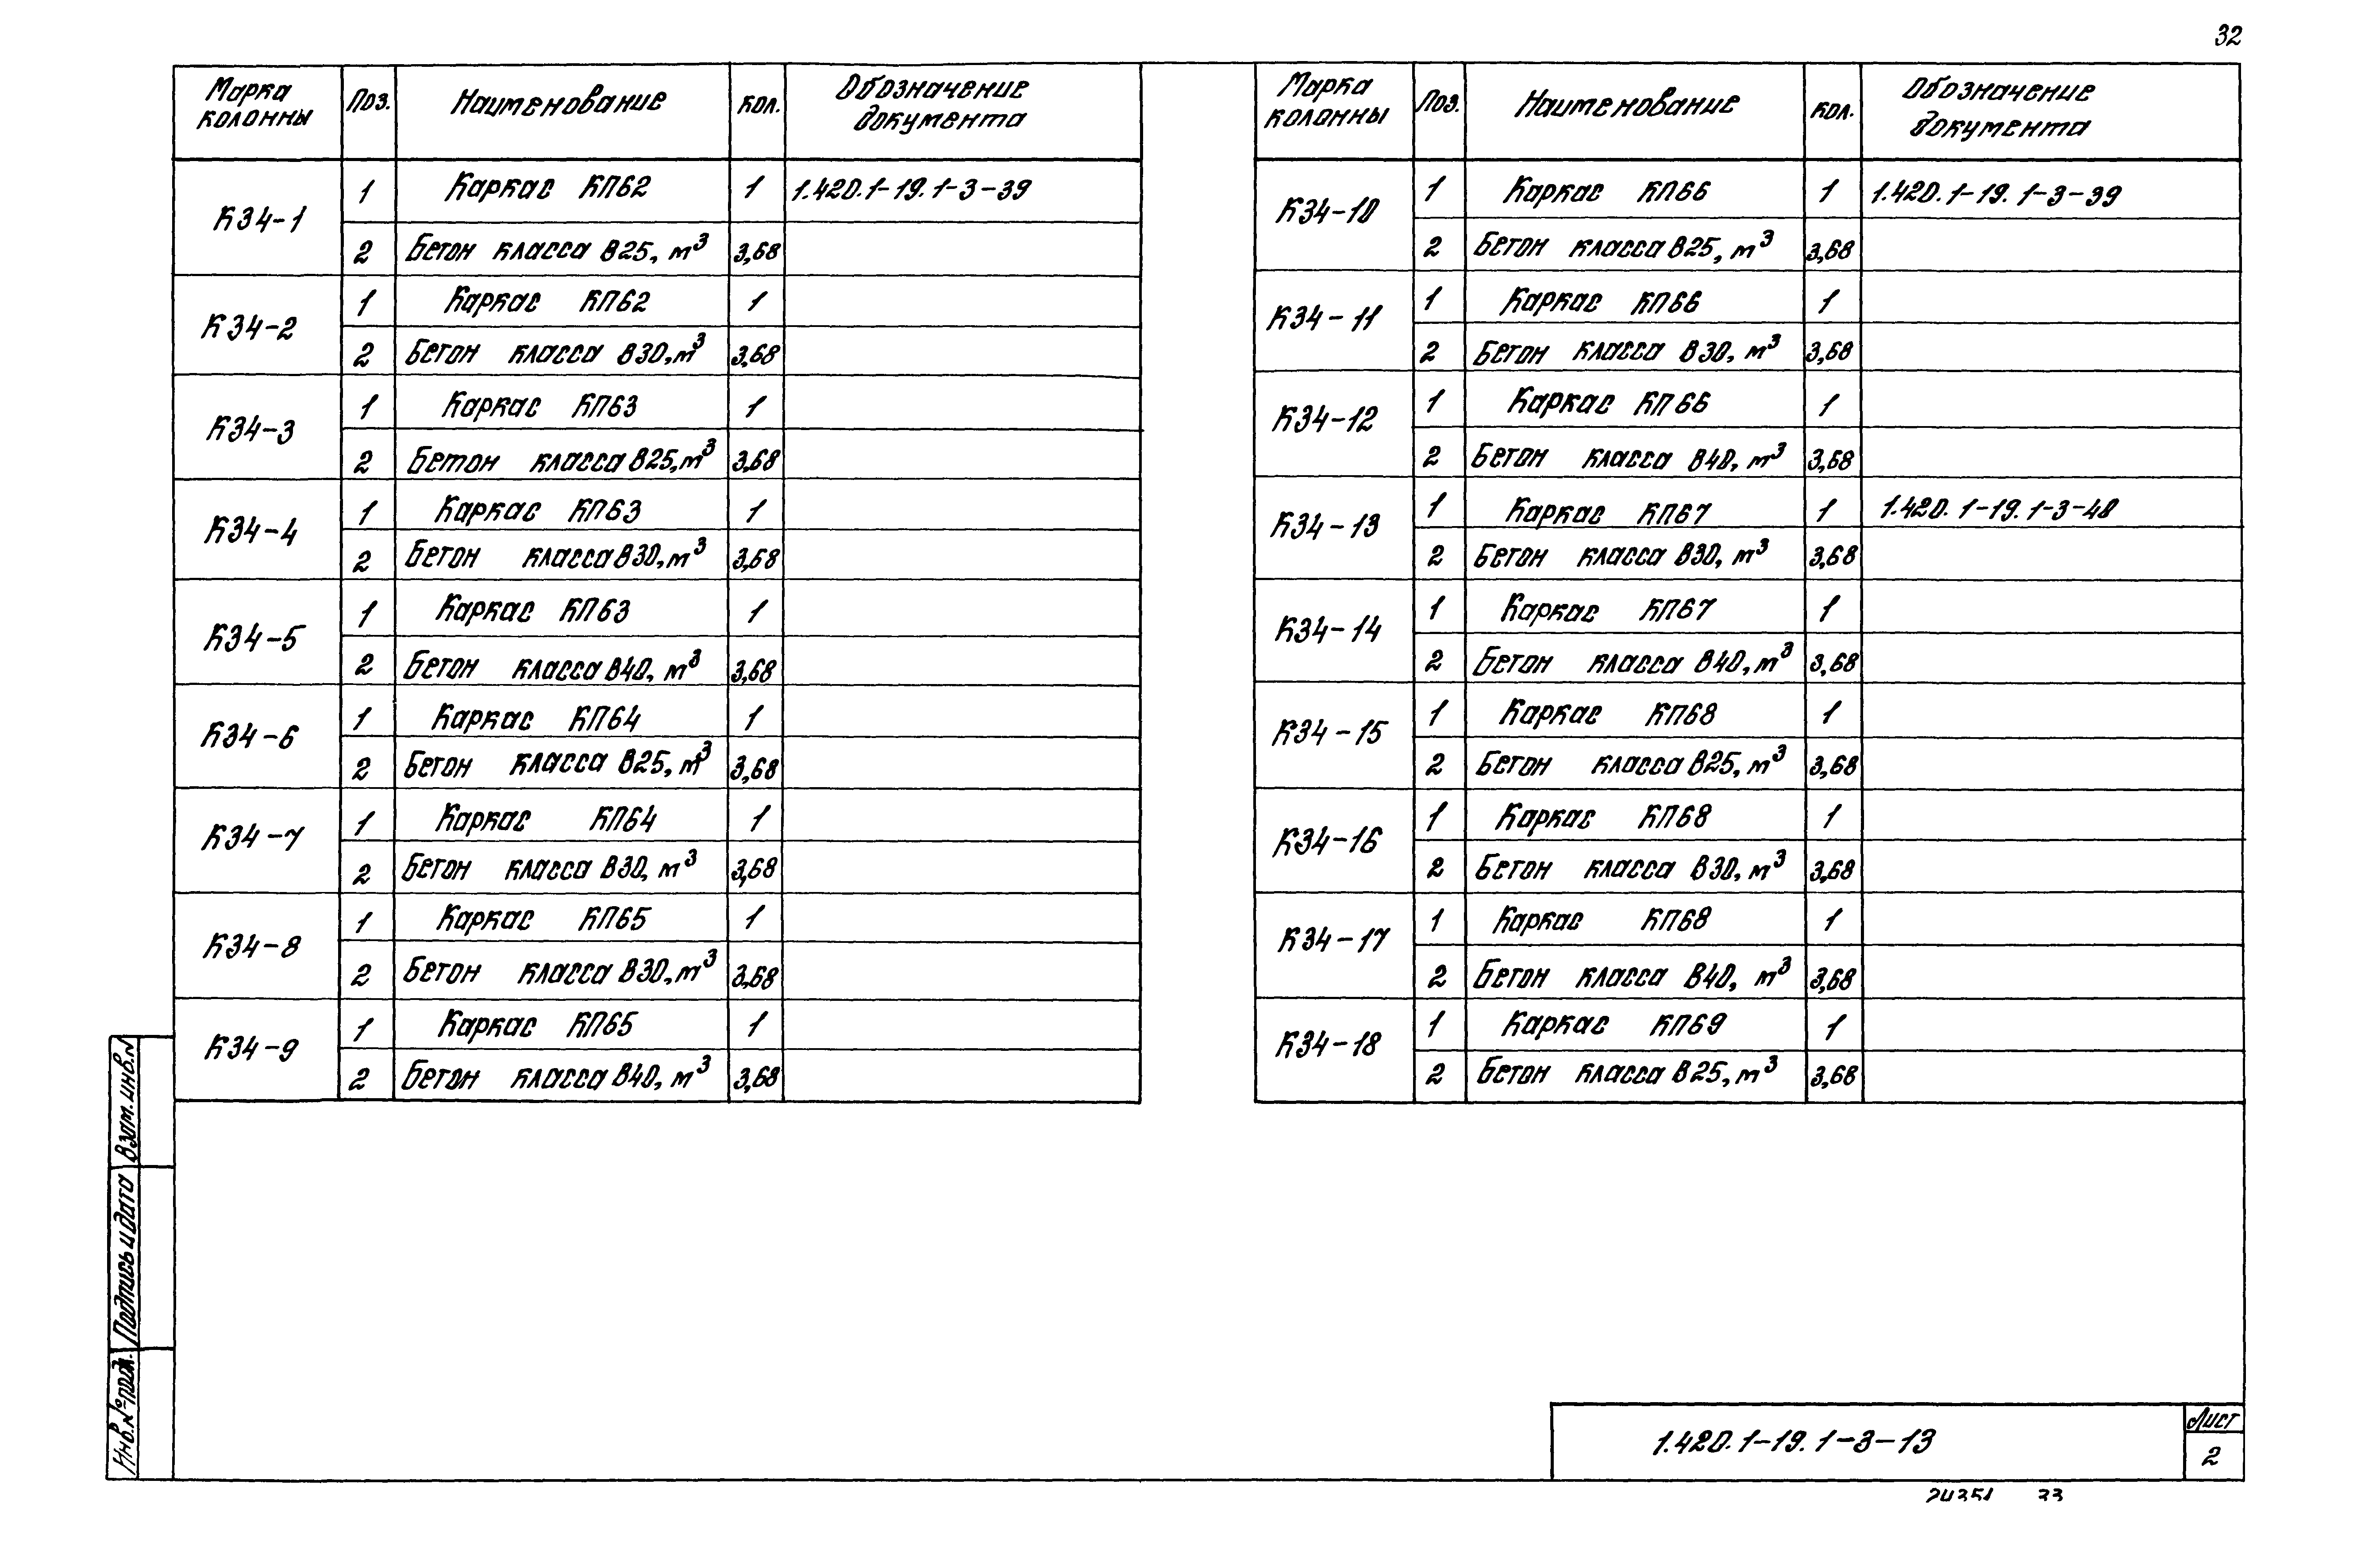 32
Марка колонны Поз. Наименование Кол. Обозначение документа
К34-1 1 Каркас КП62 1 1.420.1-19.1-3-39
2 Бетон класса В25, м³ 3,68
К34-2 1 Каркас КП62 1
2 Бетон класса В30, м³ 3,68
К34-3 1 Каркас КП63 1
2 Бетон класса В25, м³ 3,68
К34-4 1 Каркас КП63 1
2 Бетон класса В30, м³ 3,68
К34-5 1 Каркас КП63 1
2 Бетон класса В40, м³ 3,68
К34-6 1 Каркас КП64 1
2 Бетон класса В25, м³ 3,68
К34-7 1 Каркас КП64 1
2 Бетон класса В30, м³ 3,68
К34-8 1 Каркас КП65 1
2 Бетон класса В30, м³ 3,68
К34-9 1 Каркас КП65 1
2 Бетон класса В40, м³ 3,68
Марка колонны Поз. Наименование Кол. Обозначение документа
К34-10 1 Каркас КП66 1 1.420.1-19.1-3-39
2 Бетон класса В25, м³ 3,68
К34-11 1 Каркас КП66 1
2 Бетон класса В30, м³ 3,68
К34-12 1 Каркас КП66 1
2 Бетон класса В40, м³ 3,68
К34-13 1 Каркас КП67 1 1.420.1-19.1-3-40
2 Бетон класса В30, м³ 3,68
К34-14 1 Каркас КП67 1
2 Бетон класса В40, м³ 3,68
К34-15 1 Каркас КП68 1
2 Бетон класса В25, м³ 3,68
К34-16 1 Каркас КП68 1
2 Бетон класса В30, м³ 3,68
К34-17 1 Каркас КП68 1
2 Бетон класса В40, м³ 3,68
К34-18 1 Каркас КП69 1
2 Бетон класса В25, м³ 3,68
Взам. инв. №
Подпись и дата
Инв. № подл.
1.420.1-19.1-3-13
Лист
2
24351 33